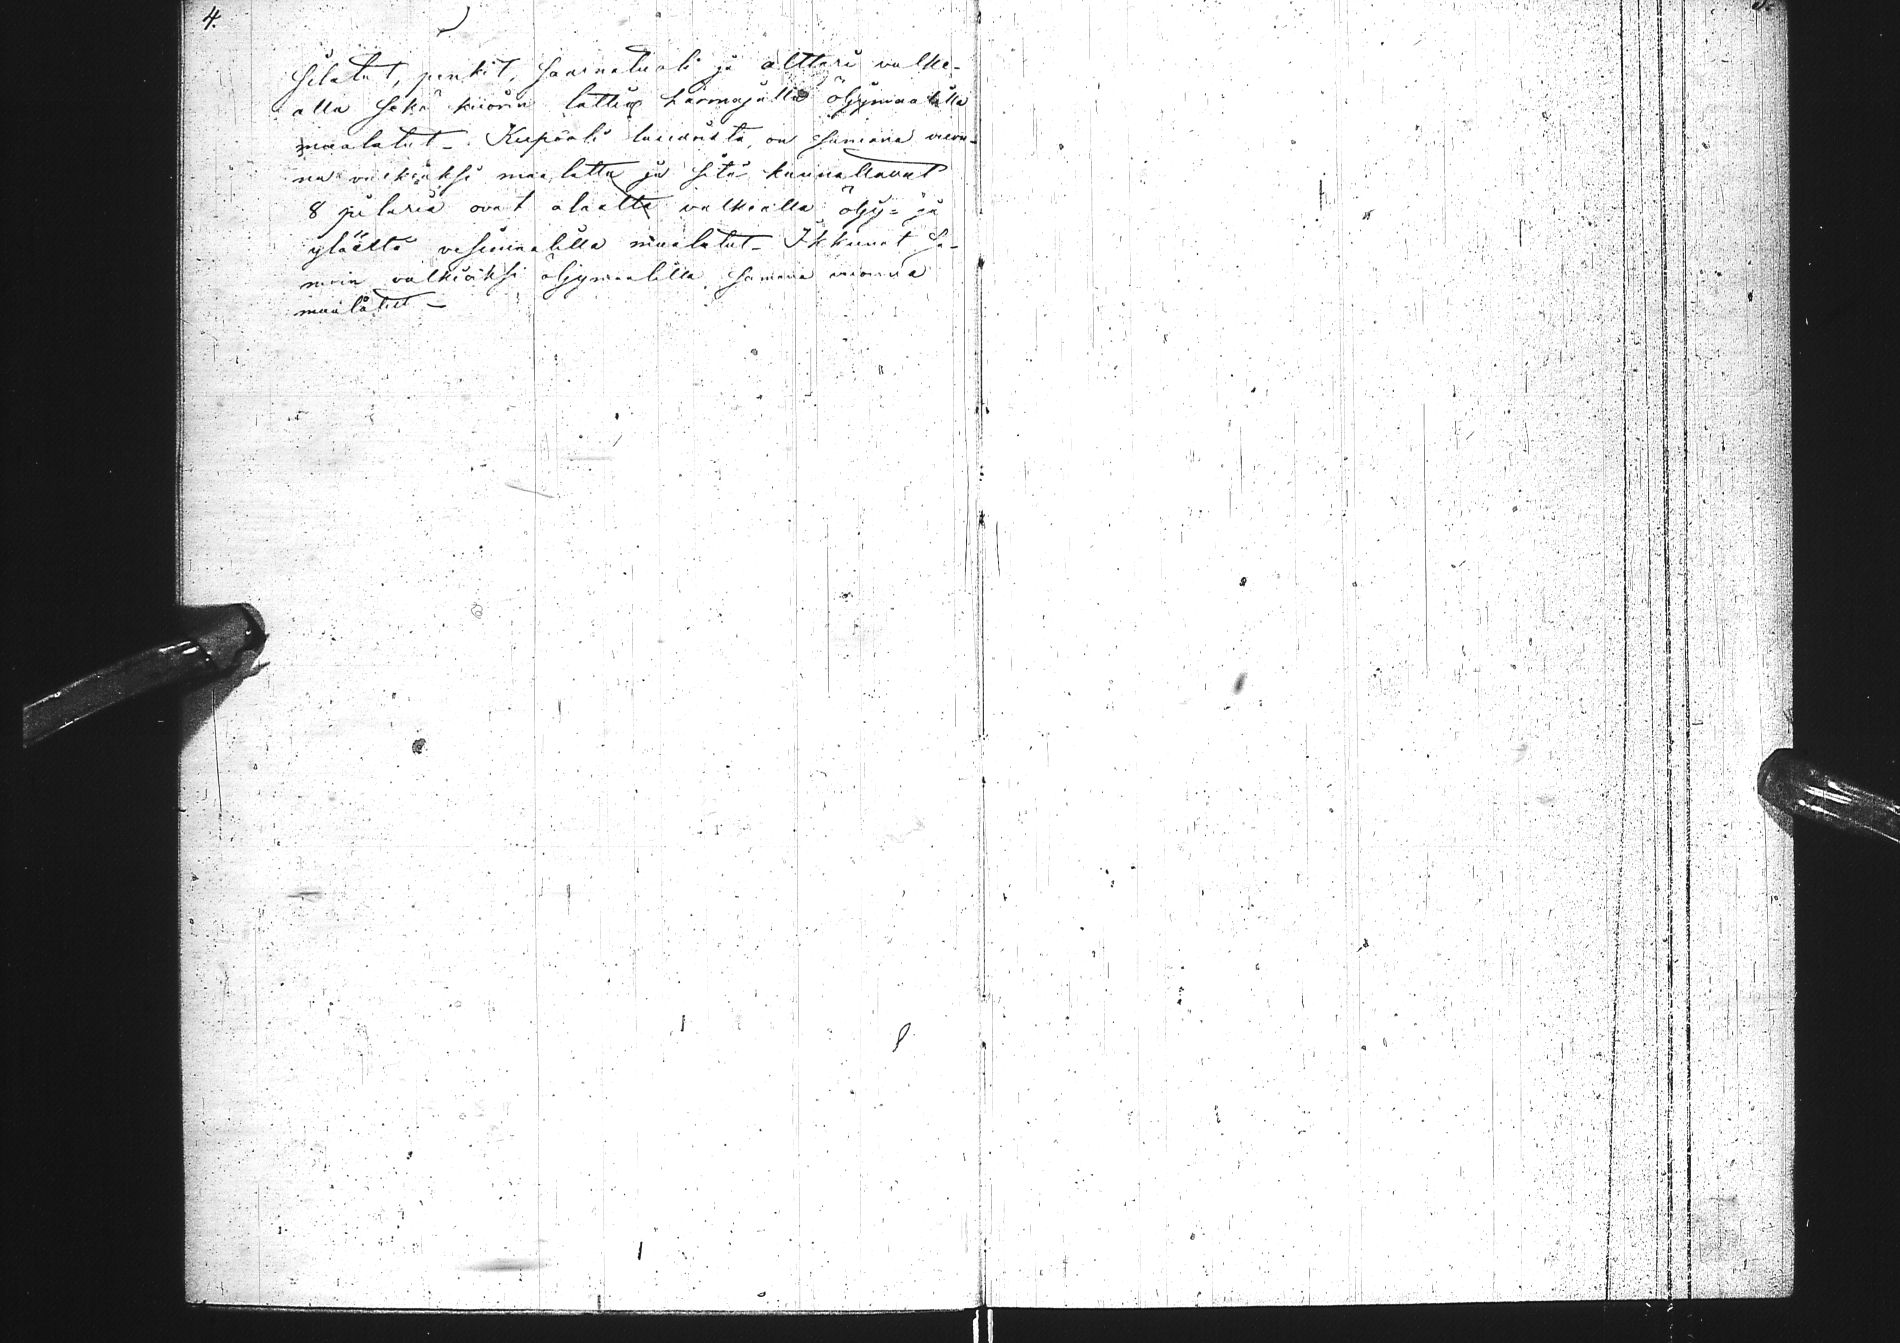 4.
silatut, penkit, saarnatuoli ja alttari valke-
alla sekä kuorin lattia harmajalla öljymaalilla
maalatut. Kupooli lauvoista, on samana vuon-
na valkiaksi maalattu ja sitä kannattavat
8 pilaria ovat alaalta valkialla öljy- ja
yläältä vesimaalilla maalatut. Ikkunat sa-
moin valkiaksi öljymaalilla samana vuonna
maalatut